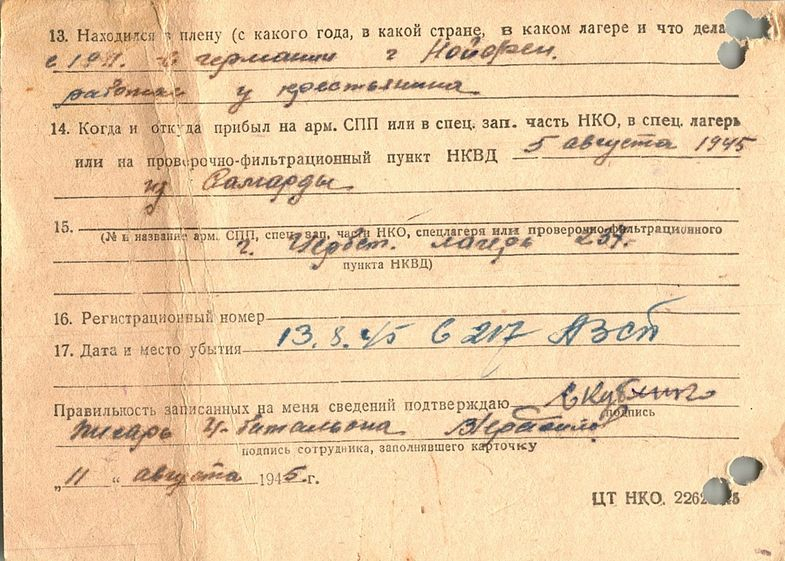 13. Находился в плену (с какого года, в какой стране, в каком лагере и что дела
с 1941 в германии г Нойофен.
работал у крестьянина
14. Когда и откуда прибыл на арм. СПП или в спец. зап. часть НКО, в спец. лагерь
или на проверочно-фильтрационный пункт НКВД 5 августа 1945
из
15.
(№ и название арм. СПП, спец. зап. части НКО, спецлагеря или проверочно-фильтрационного
г. Цербст. лагерь 234.
пункта НКВД)
16. Регистрационный номер
17. Дата и место убытия 13.8.45 в 217 АЗСП
Правильность записанных на меня сведений подтверждаю
подпись
писарь батальона
подпись сотрудника, заполнявшего карточку
„11“ августа 1945 г.
ЦТ НКО. 226